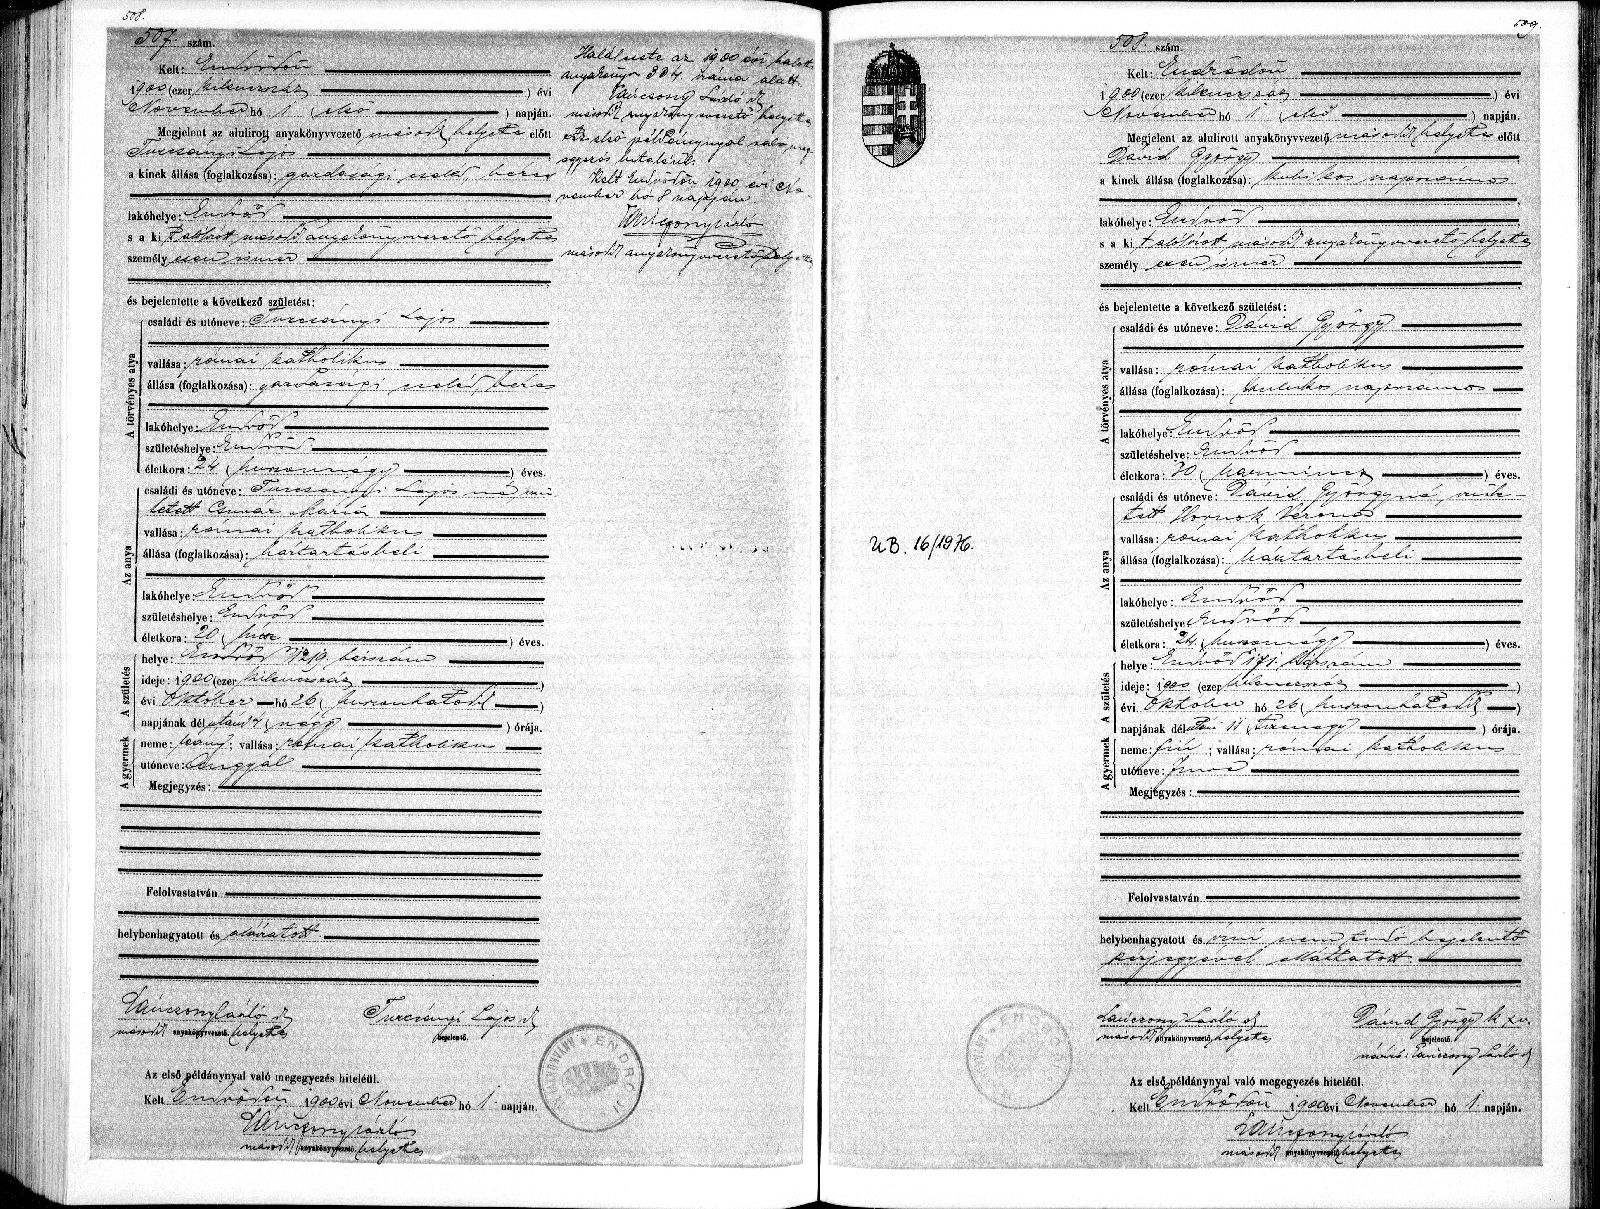 508.
507. szám.
Kelt: Endrődön
1900 (ezer kilenczszáz) évi
November hó 1 (első) napján.
Megjelent az alulirott anyakönyvvezető másodh helyettes előtt
Turcsányi Lajos
a kinek állása (foglalkozása): gazdasági cseléd, béres
lakóhelye: Endrőd
s a ki t alólirott másodh anyakönyvvezető helyettes
személyesen ismer
és bejelentette a következő születést:
A törvényes atya
családi és utóneve: Turcsányi Lajos
vallása: római katholikus
állása (foglalkozása): gazdasági cseléd, béres
lakóhelye: Endrőd
születéshelye: Endrőd
életkora: 24 (huszonnégy) éves.
Az anya
családi és utóneve: Turcsányi Lajosné szü
letett Csuvar Mária
vallása: római katholikus
állása (foglalkozása): háztartásbeli
lakóhelye: Endrőd
születéshelye: Endrőd
életkora: 20 (húsz) éves.
A születés
helye: Endrőd 1219. házszám
ideje: 1900 (ezer kilenczszáz)
évi Október hó 26 (huszonhatodik)
napjának délutáni 4 (négy) órája.
A gyermek
neme: leány; vallása: római katholikus
utóneve: Angyal
Megjegyzés:
Felolvastatván
helybenhagyatott és aláiratott
Lánczony László s
másodh anyakönyvvezető. helyettes
Turcsányi Lajos s
bejelentő.
Az első példánynyal való megegyezés hiteléül.
Kelt Endrődön, 1900 évi November hó 1 napján.
Lánczony László
másodh anyakönyvvezető. helyettes
Halál esete az 1900 évi halott
anyakönyv 334 száma alatt.
Lánczony László s
másodh anyakönyvvezető helyettes
Az első példánynyal való meg
egyezés hiteléül.
Kelt Endrődön 1900 évi No-
vember hó 8 napján.
Lánczony László
másodh anyakönyvvezető helyettes
509.
508. szám.
Kelt: Endrődön
1900 (ezer kilenczszáz) évi
November hó 1 (első) napján.
Megjelent az alulirott anyakönyvvezető másodh helyettes előtt
Dávid György
a kinek állása (foglalkozása): kubikos napszámos
lakóhelye: Endrőd
s a ki t alólirott másodh anyakönyvvezető helyettes
személyesen ismer
és bejelentette a következő születést:
A törvényes atya
családi és utóneve: Dávid György
vallása: római katholikus
állása (foglalkozása): kubikos napszámos
lakóhelye: Endrőd
születéshelye: Endrőd
életkora: 30 (harmincz) éves.
Az anya
családi és utóneve: Dávid Györgyné, szüle-
tett Hornok Verona
vallása: római katholikus
állása (foglalkozása): háztartásbeli
lakóhelye: Endrőd
születéshelye Endrőd
életkora: 24 (huszonnégy) éves.
A születés
helye: Endrőd 171. házszám
ideje: 1900 (ezer kilenczszáz)
évi Október hó 26 (huszonhatodik)
napjának délutáni 11 (tizenegy) órája.
A gyermek
neme: fiú; vallása: római katholikus
utóneve: Imre
Megjegyzés:
Felolvastatván
helybenhagyatott és irni nem tudó bejelentő
kézjegyével elláttatott
Lánczony László s
másodh anyakönyvvezető. helyettes
Dávid György k x v.
bejelentő.
névíró: Lánczony László s
Az első példánynyal való megegyezés hiteléül.
Kelt Endrődön 1900 évi November hó 1 napján.
Lánczony László
másodh anyakönyvvezető helyettes
UB. 16/1976.